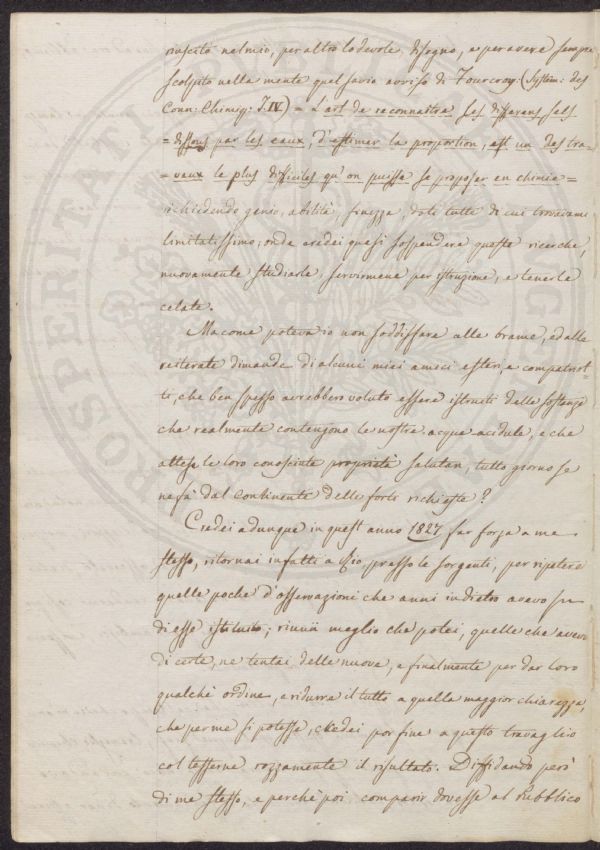 riuscito nel mio, per altro lodevole disegno, e per avere sempre
scolpito nella mente quel savio avviso di Fourcroy (System: des
Conn: Chimiq: T. IV) = L'art de reconnaitre les differens sels
= dissous par les eaux, d'estimer la proportion, est un des tra-
= vaux le plus difficiles qu'on puisse se proposer en chimie =
richiedendo genio, abilità, finezza, doti tutte di cui trovavami
limitatissimo; onde credei quasi sospendere queste ricerche,
nuovamente studiarle, servirmene per istruzione, e tenerle
celate.
Ma come poteva io non soddisfare alle brame, ed alle
reiterate dimande di alcuni miei amici esteri, e compatriot-
ti, che ben spesso avrebbero voluto essere istruiti delle sostanze
che realmente contengono le nostre acque acidule, e che
attese le loro conosciute proprietà salutari, tutto giorno se
ne fà dal Continente delle forti richieste?
Credei adunque in quest'anno 1827 far forza a me
stesso, ritornai infatti a Rio presso le sorgenti, per ripetere
quelle poche d'osservazioni che anni indietro avevo su
di esse istituite; riunii meglio che potei, quelle che avevo
di certe, ne tentai delle nuove, e finalmente per dar loro
qualche ordine, e ridurre il tutto a quella maggior chiarezza,
che per me si potesse, credei por fine a questo travaglio
col tesserne rozzamente il risultato. Diffidando però
di me stesso, e perchè poi comparir dovesse al Pubblico
PROSPERITATI PUBLICAE AUGENDAE